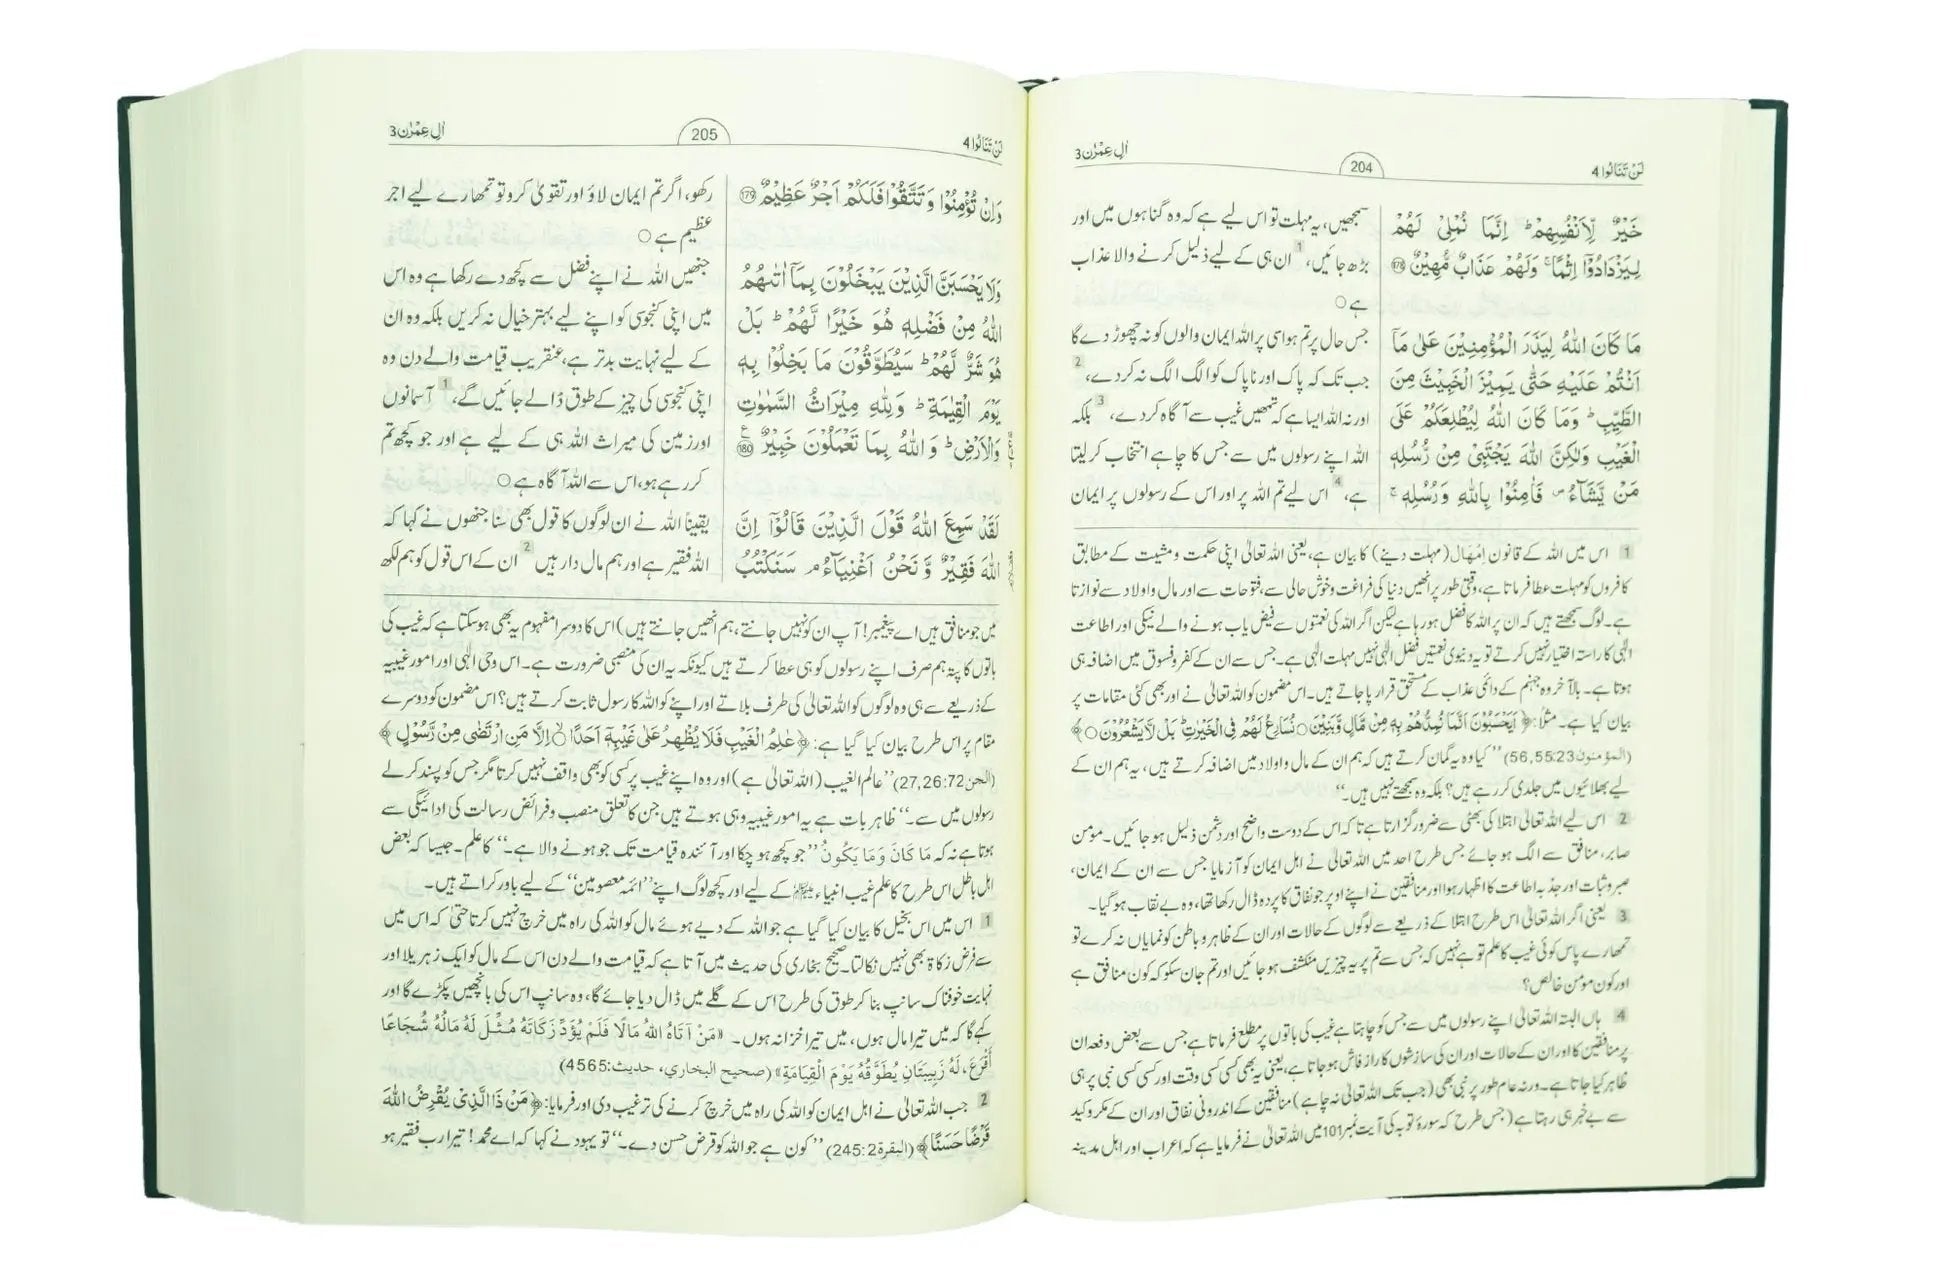 لَنْ تَنَالُوا 4
204
اٰلِ عِمْرٰن 3
خَيْرٌ لِّاَنْفُسِهِمْ ؕ اِنَّمَا نُمْلِيْ لَهُمْ
لِيَزْدَادُوْۤا اِثْمًا ۚ وَلَهُمْ عَذَابٌ مُّهِيْنٌ ۝178
مَا كَانَ اللّٰهُ لِيَذَرَ الْمُؤْمِنِيْنَ عَلٰى مَاۤ
اَنْتُمْ عَلَيْهِ حَتّٰى يَمِيْزَ الْخَبِيْثَ مِنَ
الطَّيِّبِ ؕ وَمَا كَانَ اللّٰهُ لِيُطْلِعَكُمْ عَلَى
الْغَيْبِ وَلٰكِنَّ اللّٰهَ يَجْتَبِيْ مِنْ رُّسُلِهٖ
مَنْ يَّشَآءُ ۪ فَاٰمِنُوْا بِاللّٰهِ وَرُسُلِهٖ ۚ
سمجھیں، یہ مہلت تو اس لیے ہے کہ وہ گناہوں میں اور
بڑھ جائیں، 1 ان ہی کے لیے ذلیل کرنے والا عذاب
ہے ○
جس حال پر تم ہو اسی پر اللہ ایمان والوں کو نہ چھوڑ دے گا
جب تک کہ پاک اور ناپاک کو الگ الگ نہ کر دے، 2
اور نہ اللہ ایسا ہے کہ تمھیں غیب سے آگاہ کر دے، 3 بلکہ
اللہ اپنے رسولوں میں سے جس کا چاہے انتخاب کر لیتا
ہے، 4 اس لیے تم اللہ پر اور اس کے رسولوں پر ایمان
1 اس میں اللہ کے قانون اِمْہَال (مہلت دینے) کا بیان ہے، یعنی اللہ تعالیٰ اپنی حکمت و مشیت کے مطابق
کافروں کو مہلت عطا فرماتا ہے، وقتی طور پر انھیں دنیا کی فراغت و خوش حالی سے، فتوحات سے اور مال و اولاد سے نوازتا
ہے۔ لوگ سمجھتے ہیں کہ ان پر اللہ کا فضل ہو رہا ہے لیکن اگر اللہ کی نعمتوں سے فیض یاب ہونے والے نیکی اور اطاعت
الٰہی کا راستہ اختیار نہیں کرتے تو یہ دنیوی نعمتیں فضل الٰہی نہیں مہلت الٰہی ہے۔ جس سے ان کے کفر و فسوق میں اضافہ ہی
ہوتا ہے۔ بلآخر وہ جہنم کے دائمی عذاب کے مستحق قرار پا جاتے ہیں۔ اس مضمون کو اللہ تعالیٰ نے اور بھی کئی مقامات پر
بیان کیا ہے۔ مثلاً: ﴿ اَيَحْسَبُوْنَ اَنَّمَا نُمِدُّهُمْ بِهٖ مِنْ مَّالٍ وَّبَنِيْنَ ○ نُسَارِعُ لَهُمْ فِي الْخَيْرٰتِ ؕ بَلْ لَّا يَشْعُرُوْنَ ○ ﴾
(المؤمنون 23:55,56) ”کیا وہ یہ گمان کرتے ہیں کہ ہم ان کے مال و اولاد میں اضافہ کرتے ہیں، یہ ہم ان کے
لیے بھلائیوں میں جلدی کر رہے ہیں؟ بلکہ وہ سمجھتے نہیں ہیں۔“
2 اس لیے اللہ تعالیٰ ابتلا کی بھٹی سے ضرور گزارتا ہے تاکہ اس کے دوست واضح اور دشمن ذلیل ہو جائیں۔ مومن
صابر، منافق سے الگ ہو جائے جس طرح احد میں اللہ تعالیٰ نے اہل ایمان کو آزمایا جس سے ان کے ایمان،
صبر و ثبات اور جذبہ اطاعت کا اظہار ہوا اور منافقین نے اپنے اوپر جو نفاق کا پردہ ڈال رکھا تھا، وہ بے نقاب ہو گیا۔
3 یعنی اگر اللہ تعالیٰ اس طرح ابتلا کے ذریعے سے لوگوں کے حالات اور ان کے ظاہر و باطن کو نمایاں نہ کرے تو
تمھارے پاس کوئی غیب کا علم تو ہے نہیں کہ جس سے تم پر یہ چیزیں منکشف ہو جائیں اور تم جان سکو کہ کون منافق ہے
اور کون مومن خالص؟
4 ہاں البتہ اللہ تعالیٰ اپنے رسولوں میں سے جس کو چاہتا ہے غیب کی باتوں پر مطلع فرماتا ہے جس سے بعض دفعہ ان
پر منافقین کا اور ان کے حالات اور ان کی سازشوں کا راز فاش ہو جاتا ہے، یعنی یہ بھی کسی کسی وقت اور کسی کسی نبی پر ہی
ظاہر کیا جاتا ہے۔ ورنہ عام طور پر نبی بھی (جب تک اللہ تعالیٰ نہ چاہے) منافقین کے اندرونی نفاق اور ان کے مکر و کید
سے بے خبر ہی رہتا ہے (جس طرح کہ سورۂ توبہ کی آیت نمبر 101 میں اللہ تعالیٰ نے فرمایا ہے کہ اعراب اور اہل مدینہ
لَنْ تَنَالُوا 4
205
اٰلِ عِمْرٰن 3
وَاِنْ تُؤْمِنُوْا وَتَتَّقُوْا فَلَكُمْ اَجْرٌ عَظِيْمٌ ۝179
وَلَا يَحْسَبَنَّ الَّذِيْنَ يَبْخَلُوْنَ بِمَاۤ اٰتٰىهُمُ
اللّٰهُ مِنْ فَضْلِهٖ هُوَ خَيْرًا لَّهُمْ ؕ بَلْ
هُوَ شَرٌّ لَّهُمْ ؕ سَيُطَوَّقُوْنَ مَا بَخِلُوْا بِهٖ
يَوْمَ الْقِيٰمَةِ ؕ وَلِلّٰهِ مِيْرَاثُ السَّمٰوٰتِ
وَالْاَرْضِ ؕ وَاللّٰهُ بِمَا تَعْمَلُوْنَ خَبِيْرٌ ۝180 ع
لَقَدْ سَمِعَ اللّٰهُ قَوْلَ الَّذِيْنَ قَالُوْۤا اِنَّ
اللّٰهَ فَقِيْرٌ وَّنَحْنُ اَغْنِيَآءُ ۘ سَنَكْتُبُ
رکھو، اگر تم ایمان لاؤ اور تقویٰ کرو تو تمھارے لیے اجر
عظیم ہے ○
جنھیں اللہ نے اپنے فضل سے کچھ دے رکھا ہے وہ اس
میں اپنی کنجوسی کو اپنے لیے بہتر خیال نہ کریں بلکہ وہ ان
کے لیے نہایت بدتر ہے، عنقریب قیامت والے دن وہ
اپنی کنجوسی کی چیز کے طوق ڈالے جائیں گے، 1 آسمانوں
اور زمین کی میراث اللہ ہی کے لیے ہے اور جو کچھ تم
کر رہے ہو، اس سے اللہ آگاہ ہے ○
یقیناً اللہ نے ان لوگوں کا قول بھی سنا جنھوں نے کہا کہ
اللہ فقیر ہے اور ہم مال دار ہیں 2 ان کے اس قول کو ہم لکھ
میں جو منافق ہیں اے پیغمبر! آپ ان کو نہیں جانتے، ہم انھیں جانتے ہیں) اس کا دوسرا مفہوم یہ بھی ہو سکتا ہے کہ غیب کی
باتوں کا پتہ ہم صرف اپنے رسولوں کو ہی عطا کرتے ہیں کیونکہ یہ ان کی منصبی ضرورت ہے۔ اس وحی الٰہی اور امور غیبیہ
کے ذریعے سے ہی وہ لوگوں کو اللہ تعالیٰ کی طرف بلاتے اور اپنے کو اللہ کا رسول ثابت کرتے ہیں؟ اس مضمون کو دوسرے
مقام پر اس طرح بیان کیا گیا ہے: ﴿ عٰلِمُ الْغَيْبِ فَلَا يُظْهِرُ عَلٰى غَيْبِهٖۤ اَحَدًا ○ اِلَّا مَنِ ارْتَضٰى مِنْ رَّسُوْلٍ ﴾
(الجن 72:26,27) ”عالم الغیب (اللہ تعالیٰ ہے) اور وہ اپنے غیب پر کسی کو بھی واقف نہیں کرتا مگر جس کو پسند کر لے
رسولوں میں سے۔“ ظاہر بات ہے یہ امور غیبیہ وہی ہوتے ہیں جن کا تعلق منصب و فرائض رسالت کی ادائیگی سے
ہوتا ہے نہ کہ مَا كَانَ وَمَا يَكُونُ ”جو کچھ ہو چکا اور آئندہ قیامت تک جو ہونے والا ہے۔“ کا علم۔ جیسا کہ بعض
اہل باطل اس طرح کا علم غیب انبیاء کے لیے اور کچھ لوگ اپنے ”ائمہ معصومین“ کے لیے باور کراتے ہیں۔
1 اس میں اس بخیل کا بیان کیا گیا ہے جو اللہ کے دیے ہوئے مال کو اللہ کی راہ میں خرچ نہیں کرتا حتیٰ کہ اس میں
سے فرض زکاۃ بھی نہیں نکالتا۔ صحیح بخاری کی حدیث میں آتا ہے کہ قیامت والے دن اس کے مال کو ایک زہریلا اور
نہایت خوفناک سانپ بنا کر طوق کی طرح اس کے گلے میں ڈال دیا جائے گا، وہ سانپ اس کی بانچھیں پکڑے گا اور
کہے گا کہ میں تیرا مال ہوں، میں تیرا خزانہ ہوں۔ «مَنْ آتَاهُ اللهُ مَالًا فَلَمْ يُؤَدِّ زَكَاتَهُ مُثِّلَ لَهُ مَالُهُ شُجَاعًا
أَقْرَعَ، لَهُ زَبِيبَتَانِ يُطَوَّقُهُ يَوْمَ الْقِيَامَةِ» (صحيح البخاري، حديث:4565)
2 جب اللہ تعالیٰ نے اہل ایمان کو اللہ کی راہ میں خرچ کرنے کی ترغیب دی اور فرمایا: ﴿ مَنْ ذَا الَّذِيْ يُقْرِضُ اللّٰهَ
قَرْضًا حَسَنًا ﴾ (البقرة 2:245) ”کون ہے جو اللہ کو قرض حسن دے۔“ تو یہود نے کہا کہ اے محمد! تیرا رب فقیر ہو